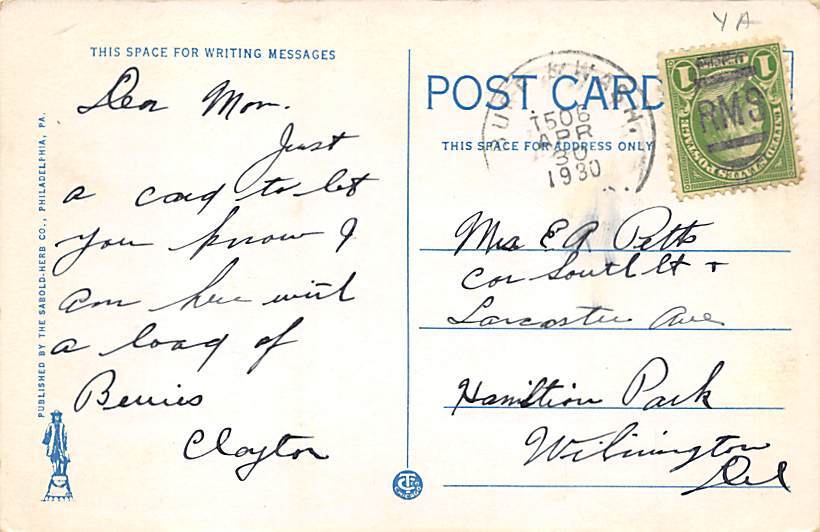 YA
THIS SPACE FOR WRITING MESSAGES
Dear Mom.
Just
a card to let
you know I
am here with
a load of
Berries
Clayton
PUBLISHED BY THE SABOLD-HERB CO., PHILADELPHIA, PA.
POST CARD
THIS SPACE FOR ADDRESS ONLY
& WASH.
APR
30
1930
1 1
RMS
Mrs E A Petts
Cor South St +
Lancaster Ave
Hamiltion Park
Wilmington
Del